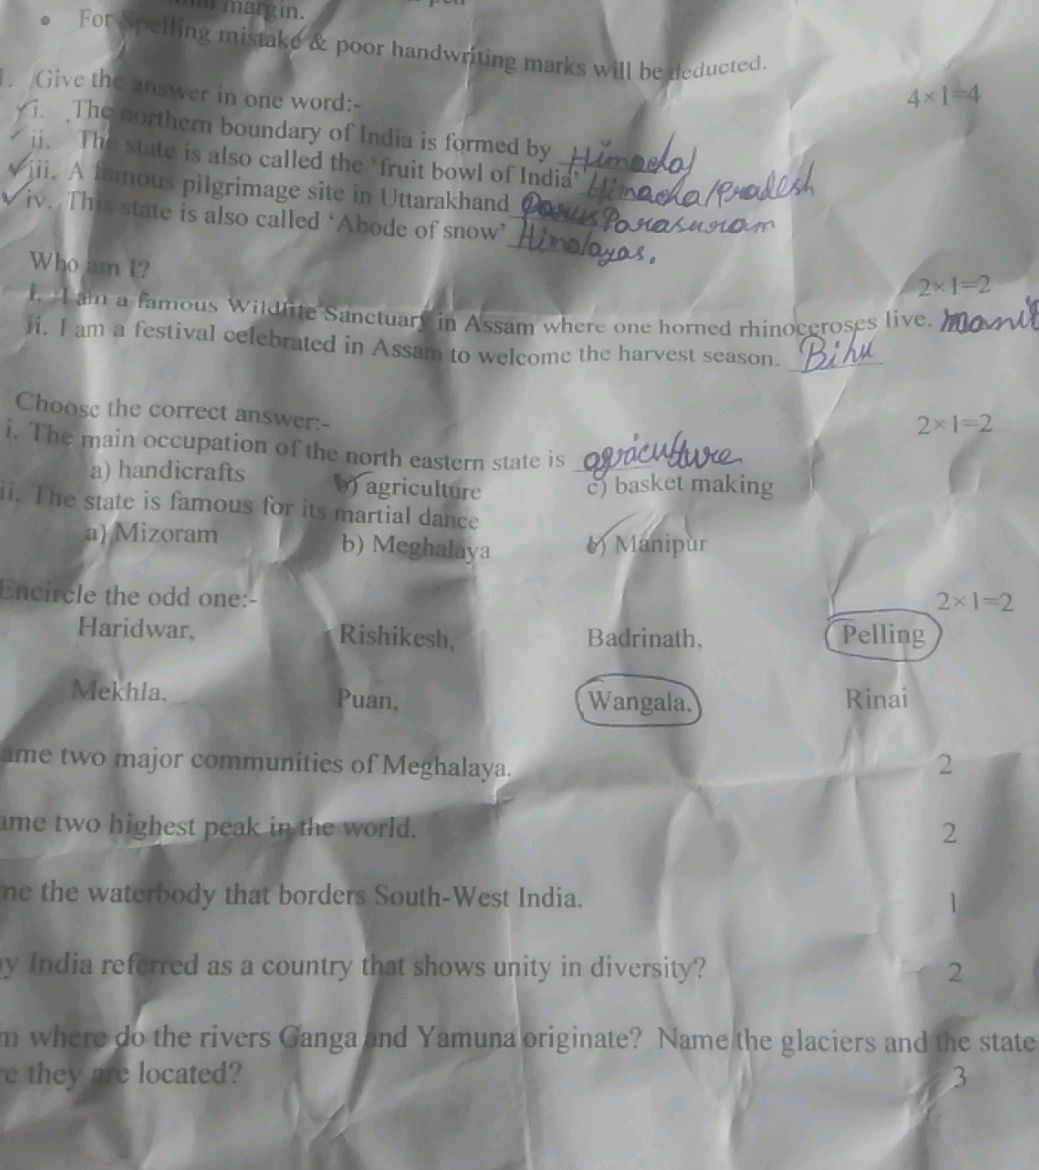 margin.
• For Spelling mistake & poor handwriting marks will be deducted.
1. Give the answer in one word:- 4×1=4
i. The northern boundary of India is formed by
ii. The state is also called the 'fruit bowl of India' Himachal Pradesh
iii. A famous pilgrimage site in Uttarakhand Parasuram
iv. This state is also called 'Abode of snow' Himalayas.
Who am I? 2×1=2
i. I am a famous Wildlife Sanctuary in Assam where one horned rhinoceroses live.
ii. I am a festival celebrated in Assam to welcome the harvest season. Bihu
Choose the correct answer:- 2×1=2
i. The main occupation of the north eastern state is agriculture
a) handicrafts b) agriculture c) basket making
ii. The state is famous for its martial dance
a) Mizoram b) Meghalaya Manipur
Encircle the odd one:- 2×1=2
Haridwar, Rishikesh, Badrinath, Pelling
Mekhla, Puan, Wangala, Rinai
ame two major communities of Meghalaya. 2
ame two highest peak in the world. 2
me the waterbody that borders South-West India. 1
y India referred as a country that shows unity in diversity? 2
m where do the rivers Ganga and Yamuna originate? Name the glaciers and the state
re they are located? 3